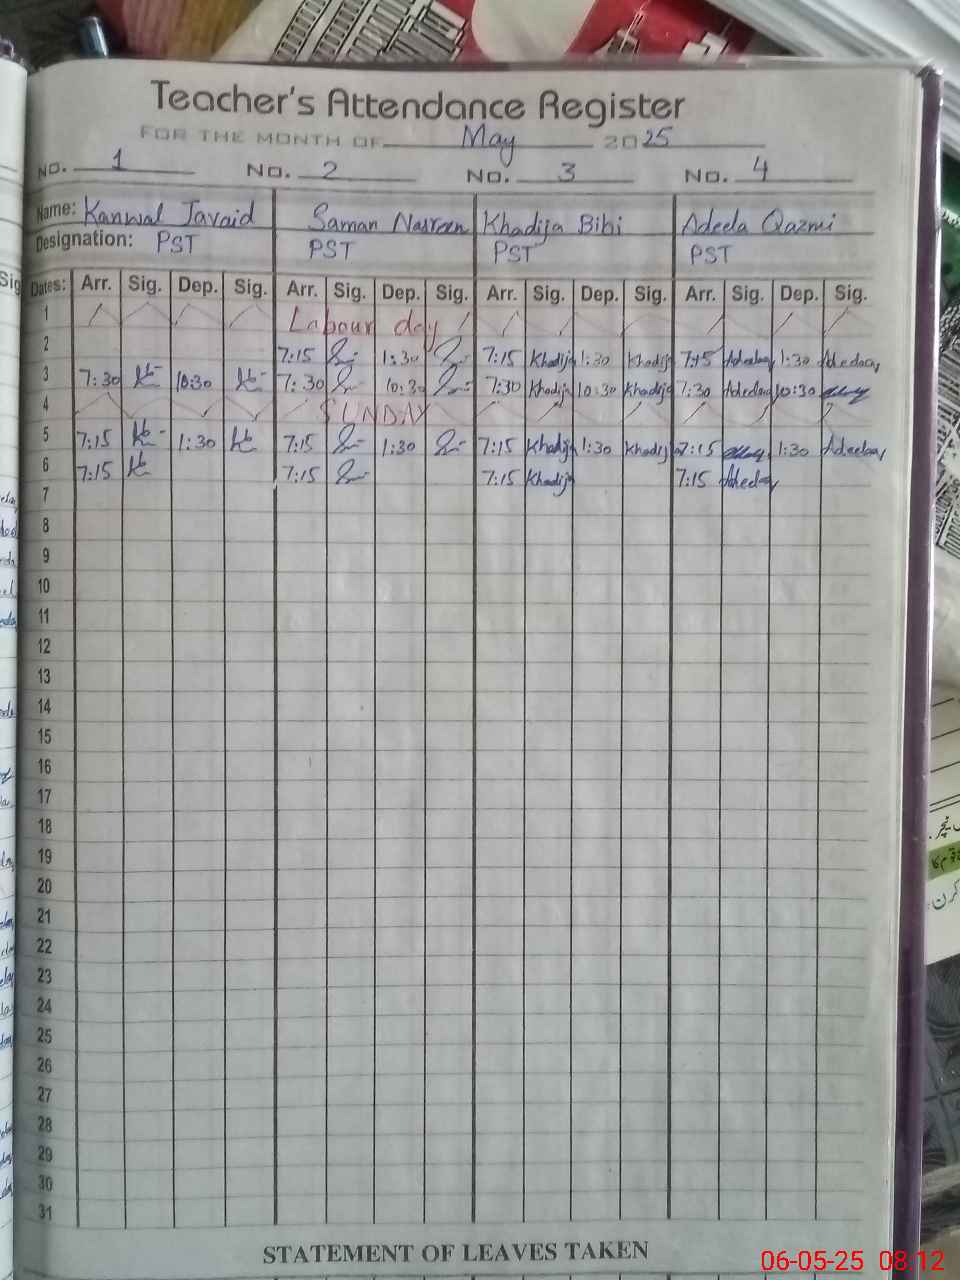 Teacher's Attendance Register
FOR THE MONTH OF May 2025
NO. 1 NO. 2 NO. 3 NO. 4
Name: Kanwal Javaid Saman Nasreen Khadija Bibi Adeela Qazmi
Designation: PST PST PST PST
Dates: Arr. Sig. Dep. Sig. Arr. Sig. Dep. Sig. Arr. Sig. Dep. Sig. Arr. Sig. Dep. Sig.
1 Labour day
2 7:15 1:30 7:15 Khadija 1:30 Khadija 7:15 Adeelaq 1:30 Adeelaq
3 7:30 10:30 7:30 10:30 7:30 Khadija 10:30 Khadija 7:30 Adeelaq 10:30
4 SUNDAY
5 7:15 1:30 7:15 1:30 7:15 Khadija 1:30 Khadija 7:15 1:30 Adeelaq
6 7:15 7:15 7:15 Khadija 7:15 Adeelaq
7
8
9
10
11
12
13
14
15
16
17
18
19
20
21
22
23
24
25
26
27
28
29
30
31
STATEMENT OF LEAVES TAKEN
06-05-25 08:12